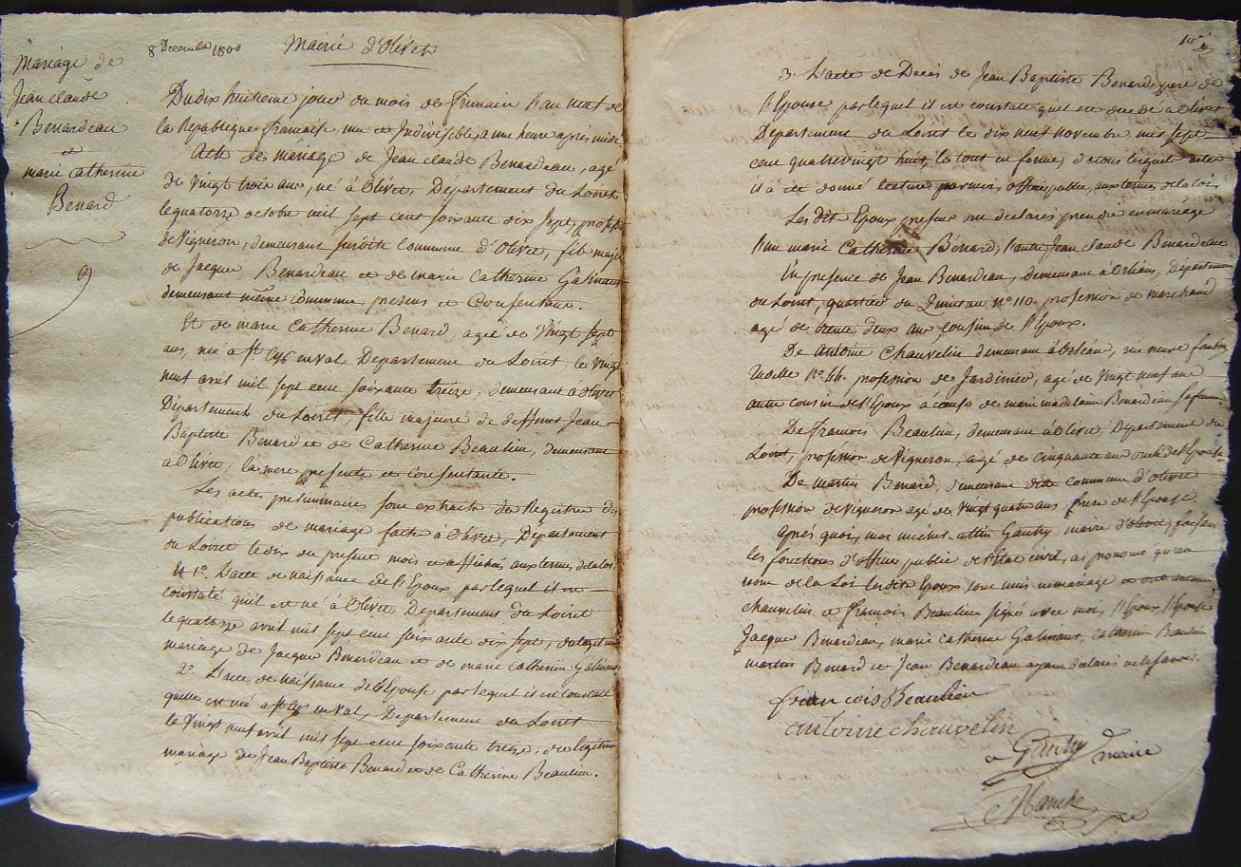 Mariage de
Jean claude
Benardeau
et
marie catherine
Benard
9
8 Decembre 1800
Mairie d'Olivet
Du dix huitieme jour du mois de frimaire l'an neuf de
la République francaise une et Indivisible, a une heure après midi
Acte de mariage de Jean claude Benardeau, agé
de vingt trois ans, né à Olivet, Département du Loiret
le quatorze octobre mil sept cent soixante dix sept, profession
de Vigneron, demeurant susdite Commune d'Olivet, fils majeur
de Jacque Benardeau et de marie Catherine Galinaut
demeurant même Commune, presens et Consentans.
Et de marie Catherine Benard, agée de Vingt sept
ans, née a St. Cyr en val, Departement du Loiret, le vingt
neuf avril mil sept cent soixante treize, demeurant a olivet
Département du Loiret, fille majeure de deffunt Jean
Baptiste Benard et de Catherine Beaulin, demeurant
à Olivet, la mere presente et consentante.
Les actes preliminaires sont extraits du Registre des
publications de mariage faite à Olivet, Département
du Loiret le dix du present mois et affichés aux termes de la loi
1°. L'acte de naissance de l'Epoux par lequel il est
constaté qu'il est né à Olivet Departement du Loiret
le quatorze avril mil sept cent soixante dix sept, du légitime
mariage de Jacque Benardeau et de marie Catherine Galinaut
2°. L'acte de naissance de l'Epouse par lequel il est constaté
quelle est née a St Cyr en val, Departement du Loiret
le vingt neuf avril mil sept cent soixante treize, du légitime
mariage de Jean Baptiste Benard et de Catherine Beaulin.
3°. L'acte de Decès de Jean Baptiste Benard, pere de
l'Epouse par lequel il est constaté quil est decedé a Olivet
Département du Loiret le dix neuf novembre mil sept
cent quatrevingt huit, le tout en forme, de tous lesquels actes
il a été donné lecture par moi, officier public, aux termes de la loi.
Les dits Epoux presens ont déclaré prendre en mariage
l'un marie Catherine Bénard, l'autre Jean Claude Benardeau
En presence de Jean Benardeau, demeurant à Orléans, Département
du Loiret, quartier du N° 110. profession de marchand
agé de trente deux ans cousin de l'Epoux.
De Antoine Chauvelin demeurant à Orléans,
N° 46. profession de Jardinier, agé de vingt neuf ans
autre cousin de l'Epoux à cause de marie madelaine Benardeau sa femme.
De francois Beaulin, demeurant à Olivet, Département du
Loiret, profession de Vigneron, agé de cinquante ans oncle de l'Epouse
De martin Benard, demeurant dite commune d'olivet
profession de vigneron agé de vingt quatre ans frere de l'Epouse.
Après quoi, moi Gautry maire d'olivet, faisant
les fonctions d'officier public de l'Etat civil, ai prononcé qu'au
nom de la Loi les dits Epoux sont unis en mariage et ont
Chauvelin et francois Beaulin signé avec moi, l'Epoux l'Epouse
Jacque Benardeau, marie Catherine Galinaut, Catherine Beaulin
martin Benard et Jean Benardeau ayant déclaré ne le savoir.
francois Beaulin
antoine chauvelin
Gautry maire